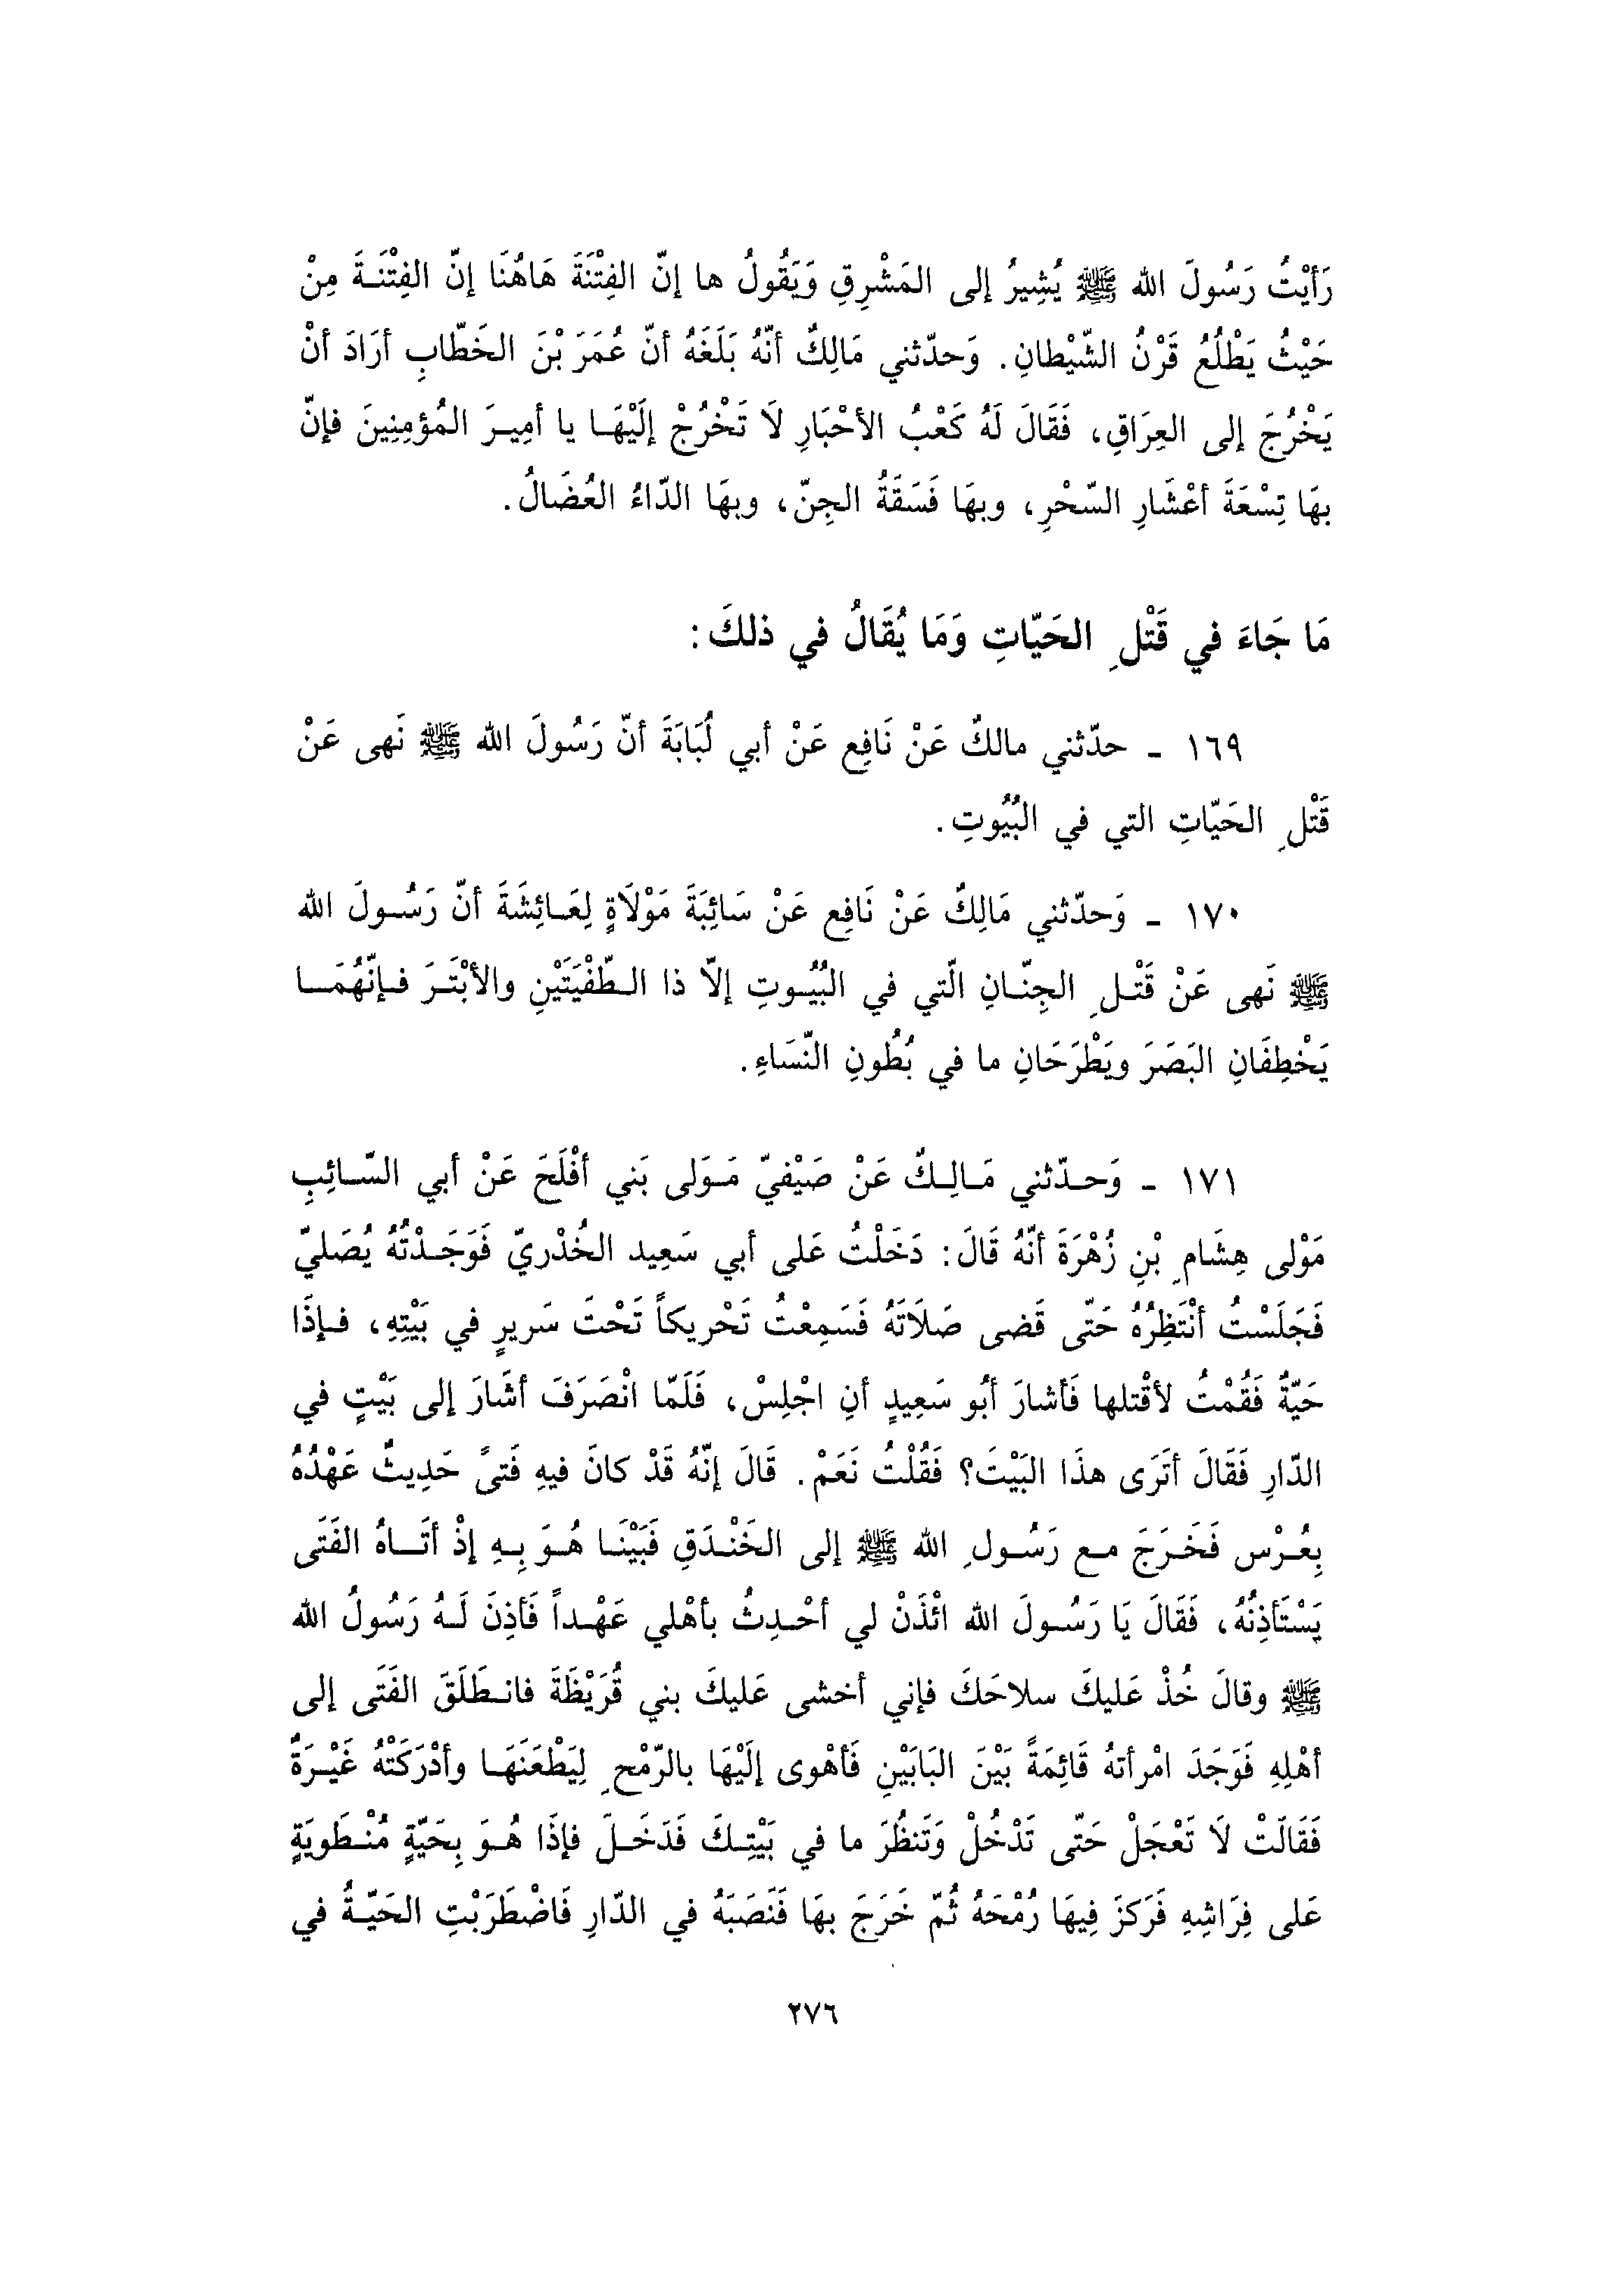 رَأَيْتُ رَسُولَ الله ﷺ يُشِيرُ إلى المَشْرِقِ وَيَقُولُ ها إنّ الفِتْنَةَ هَاهُنَا إنّ الفِتْنَةَ مِنْ
حَيْثُ يَطْلُعُ قَرْنُ الشّيْطانِ. وَحدّثني مَالِكٌ أنّهُ بَلَغَهُ أنّ عُمَرَ بْنَ الخَطّابِ أرَادَ أنْ
يَخْرُجَ إلى العِرَاقِ، فَقَالَ لَهُ كَعْبُ الأحْبَارِ لَا تَخْرُجْ إلَيْهَا يا أمِيرَ المُؤمِنِينَ فإنّ
بهَا تِسْعَةَ أعْشَارِ السّحْرِ، وبهَا فَسَقَةُ الجِنّ، وبهَا الدّاءُ العُضَالُ.
مَا جَاءَ في قَتْلِ الحَيّاتِ وَمَا يُقَالُ في ذلكَ:
١٦٩ ـ حدّثني مالكٌ عَنْ نَافِعٍ عَنْ أبي لُبَابَةَ أنّ رَسُولَ الله ﷺ نَهى عَنْ
قَتْلِ الحَيّاتِ التي في البُيُوتِ.
١٧٠ ـ وَحدّثني مَالِكٌ عَنْ نَافِعٍ عَنْ سَائِبَةَ مَوْلَاةٍ لِعَائِشَةَ أنّ رَسُولَ الله
ﷺ نَهى عَنْ قَتْلِ الجِنّانِ الّتي في البُيُوتِ إلاّ ذا الطّفْيَتَيْنِ والأبْتَرَ فإنّهُمَا
يَخْطِفَانِ البَصَرَ ويَطْرَحَانِ ما في بُطُونِ النّسَاءِ.
١٧١ ـ وَحدّثني مَالِكٌ عَنْ صَيْفيّ مَوَلى بَني أفْلَحَ عَنْ أبي السّائِبِ
مَوْلى هِشَامِ بْنِ زُهْرَةَ أنّهُ قَالَ: دَخَلْتُ عَلى أبي سَعِيد الخُدْريّ فَوَجَدْتُهُ يُصَليّ
فَجَلَسْتُ أنْتَظِرُهُ حَتّى قَضى صَلَاتَهُ فَسَمِعْتُ تَحْريكاً تَحْتَ سَريرٍ في بَيْتِهِ، فإذَا
حَيّةٌ فَقُمْتُ لأقْتلها فَأشارَ أبُو سَعِيدٍ أنِ اجْلِسْ، فَلَمّا انْصَرَفَ أشَارَ إلى بَيْتٍ في
الدّارِ فَقَالَ أتَرَى هذَا البَيْتَ؟ فَقُلْتُ نَعَمْ. قَالَ إنّهُ قَدْ كانَ فيهِ فَتىً حَدِيثٌ عَهْدُهُ
بِعُرْس فَخَرَجَ مع رَسُولِ الله ﷺ إلى الخَنْدَقِ فَبَيْنَا هُوَ بِهِ إذْ أتَاهُ الفَتَى
يَسْتَأذِنُهُ، فَقَالَ يَا رَسُولَ الله ائْذَنْ لي أحْدِثُ بأهْلي عَهْداً فَأذِنَ لَهُ رَسُولُ الله
ﷺ وقالَ خُذْ عَليكَ سلاحَكَ فإني أخشى عَليكَ بني قُرَيْظَةَ فانطَلَقَ الفَتَى إلى
أهْلِهِ فَوَجَدَ امْرأتهُ قَائِمَةً بَيْنَ البَابَيْنِ فَأهْوى إلَيْهَا بالرّمْحِ لِيَطْعَنَهَا وأدْرَكَتْهُ غَيْرَةٌ
فَقَالَتْ لَا تَعْجَلْ حَتّى تَدْخُلْ وَتَنظُرَ ما في بَيْتِكَ فَدَخَلَ فإذَا هُوَ بِحَيّةٍ مُنْطَويَةٍ
عَلى فِرَاشِهِ فَرَكزَ فِيهَا رُمْحَهُ ثُمّ خَرَجَ بهَا فَنَصَبَهُ في الدّارِ فَاضْطَرَبْتِ الحَيّةُ في
٢٧٦